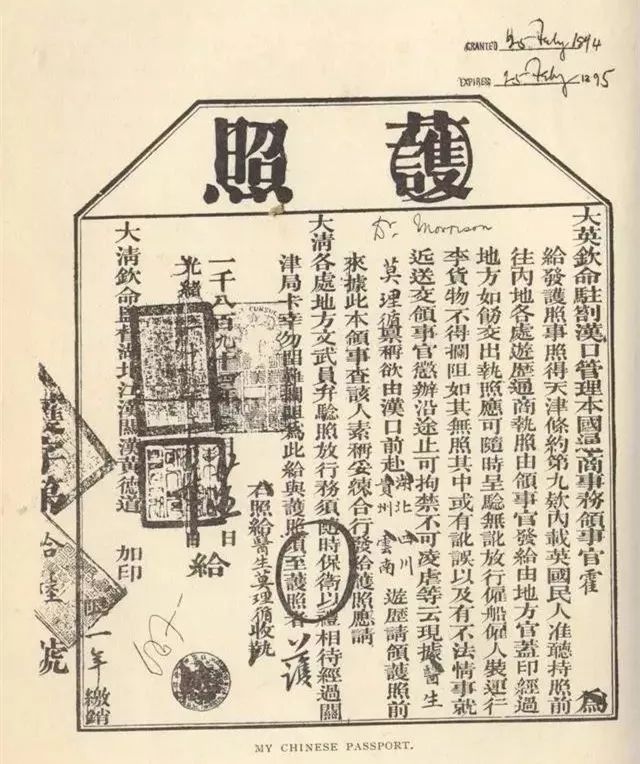 GRANTED 25 Feby 1894
EXPIRES 25 Feby 1895
護照
Dr. Morrison
大英欽命駐劄漢口管理本國通商事務領事官霍 為
給發護照事照得天津條約第九欵內載英國民人准聽持照前
往內地各處遊歷通商執照由領事官發給由地方官蓋印經過
地方如飭交出執照應可隨時呈驗無訛放行僱船僱人裝運行
李貨物不得攔阻如其無照其中或有訛誤以及有不法情事就
近送交領事官懲辦沿途止可拘禁不可凌虐等云現據醫生
莫理循禀稱欲由漢口前赴湖北四川貴州雲南遊歷請領護照前
來據此本領事查該人素稱妥練合行發給護照應請
大清各處地方文武員弁驗照放行務須隨時保衛以禮相待經過關
津局卡幸勿留難攔阻為此給與護照須至護照者
護
右照給醫生莫理循收執
一千八百九十四年 日 給
光緒
大清欽命監督湖北江漢關漢黃德道 加印
限一年繳銷
護字第 號
MY CHINESE PASSPORT.